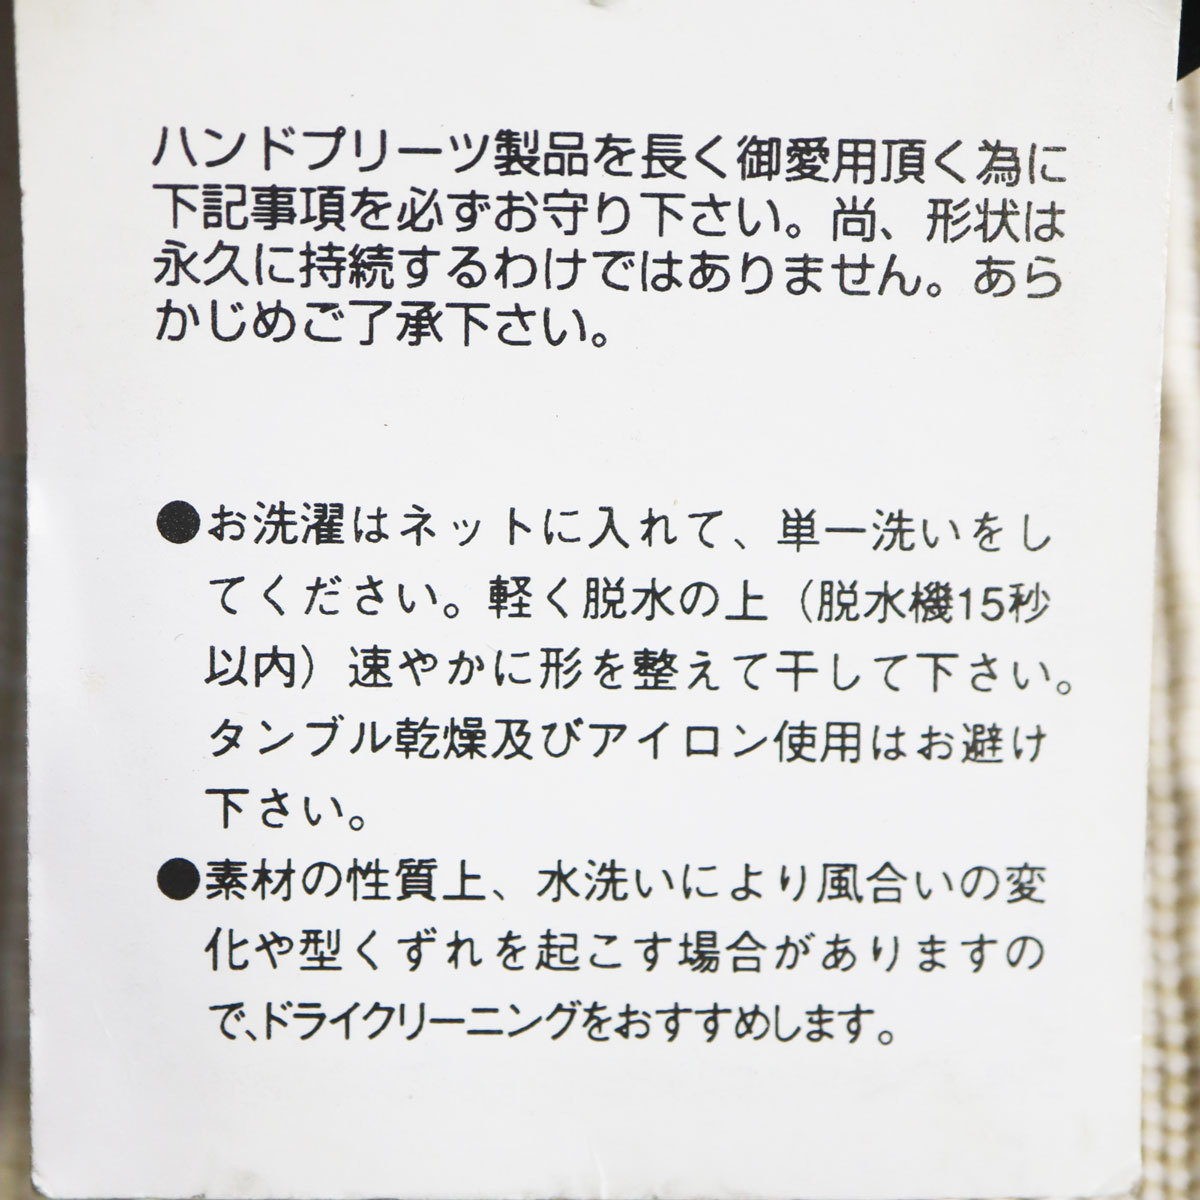 ハンドプリーツ製品を長く御愛用頂く為に
下記事項を必ずお守り下さい。尚、形状は
永久に持続するわけではありません。あら
かじめご了承下さい。
●お洗濯はネットに入れて、単一洗いをし
てください。軽く脱水の上（脱水機15秒
以内）速やかに形を整えて干して下さい。
タンブル乾燥及びアイロン使用はお避け
下さい。
●素材の性質上、水洗いにより風合いの変
化や型くずれを起こす場合がありますの
で、ドライクリーニングをおすすめします。